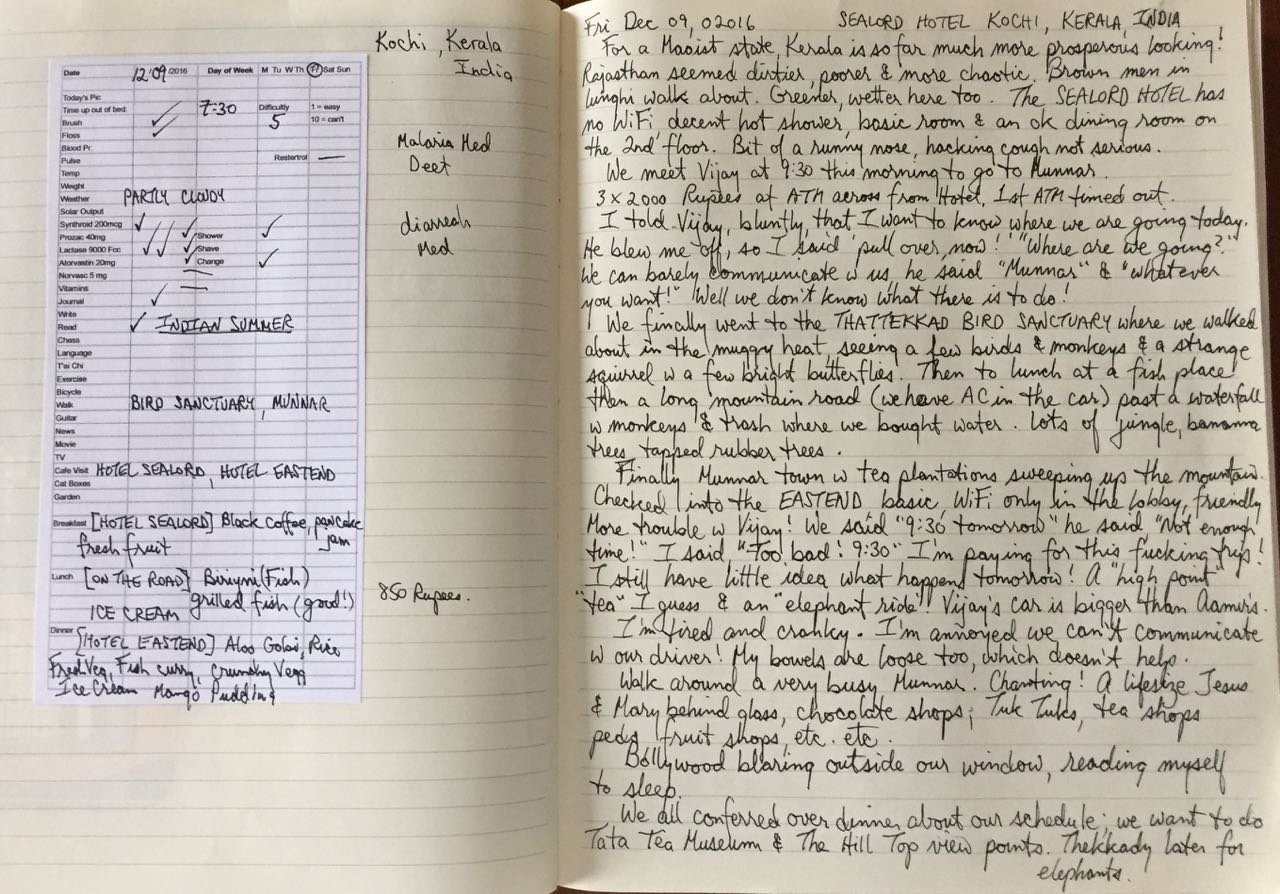 Kochi, Kerala
India
Date 12/09/2016 Day of Week M Tu W Th Fr Sat Sun
Today's Pic
Time up out of bed: 7:30 Difficulty 1 = easy
Brush 5 10 = can't
Floss
Blood Pr.
Pulse Restertrol —
Temp
Weight
Weather PARTLY CLOUDY
Solar Output
Synthroid 200mcg ✓
Prozac 40mg ✓ Shower ✓
Lactase 9000 Fcc ✓ Shave
Atorvastin 20mg ✓ Change ✓
Norvasc 5 mg —
Vitamins —
Journal ✓
Write
Read ✓ INDIAN SUMMER
Chess
Language
T'ai Chi
Exercise
Bicycle
Walk BIRD SANCTUARY, MUNNAR
Guitar
News
Movie
TV
Cafe Visit HOTEL SEALORD, HOTEL EASTEND
Cat Boxes
Garden
Breakfast [HOTEL SEALORD] Black coffee, pancake
fresh fruit jam
Lunch [ON THE ROAD] Biriyni (Fish)
ICE CREAM grilled fish (good!)
Dinner [HOTEL EASTEND] Aloo Gobi, Rice
Fried Veg, Fish curry, crunchy Vegg
Ice Cream Mango Pudding
Malaria Med
Deet
diarreah
Med
850 Rupees.
Fri Dec 09, 02016 SEALORD HOTEL KOCHI, KERALA, INDIA
For a Maoist state, Kerala is so far much more prosperous looking!
Rajasthan seemed dirtier, poorer & more chaotic. Brown men in
lunghi walk about. Greener, wetter here too. The SEALORD HOTEL has
no WiFi, decent hot shower, basic room & an ok dining room on
the 2nd floor. Bit of a runny nose, hacking cough not serious.
We meet Vijay at 9:30 this morning to go to Munnar.
3 x 2000 Rupees at ATM across from Hotel, 1st ATM timed out.
I told Vijay, bluntly, that I want to know where we are going today.
He blew me off, so I said 'pull over, now!' "Where are we going?"
We can barely communicate w us, he said "Munnar" & "whatever
you want!" Well we don't know what there is to do!
We finally went to the THATTEKKAD BIRD SANCTUARY where we walked
about in the muggy heat, seeing a few birds & monkeys & a strange
squirrel w a few bright butterflies. Then to lunch at a fish place
then a long mountain road (we have AC in the car) past a waterfall
w monkeys & trash where we bought water. Lots of jungle, bananna
trees, tapped rubber trees.
Finally Munnar town w tea plantations sweeping up the mountain.
Checked into the EASTEND basic, WiFi only in the lobby, friendly
More trouble w Vijay! We said "9:30 tomorrow" he said "Not enough
time!" I said "Too bad! 9:30" I'm paying for this fucking trip!
I still have little idea what happens tomorrow! A "high point"
"tea" I guess & an "elephant ride"! Vijay's car is bigger than Aamir's.
I'm tired and cranky. I'm annoyed we can't communicate
w our driver! My bowels are loose too, which doesn't help.
Walk around a very busy Munnar. Chanting! A lifesize Jesus
& Mary behind glass, chocolate shops, Tuk Tuks, tea shops
peds, fruit shops, etc. etc.
Bollywood blaring outside our window, reading myself
to sleep.
We all conferred over dinner about our schedule; we want to do
Tata Tea Museum & The Hill Top view points. Thekkady later for
elephants.